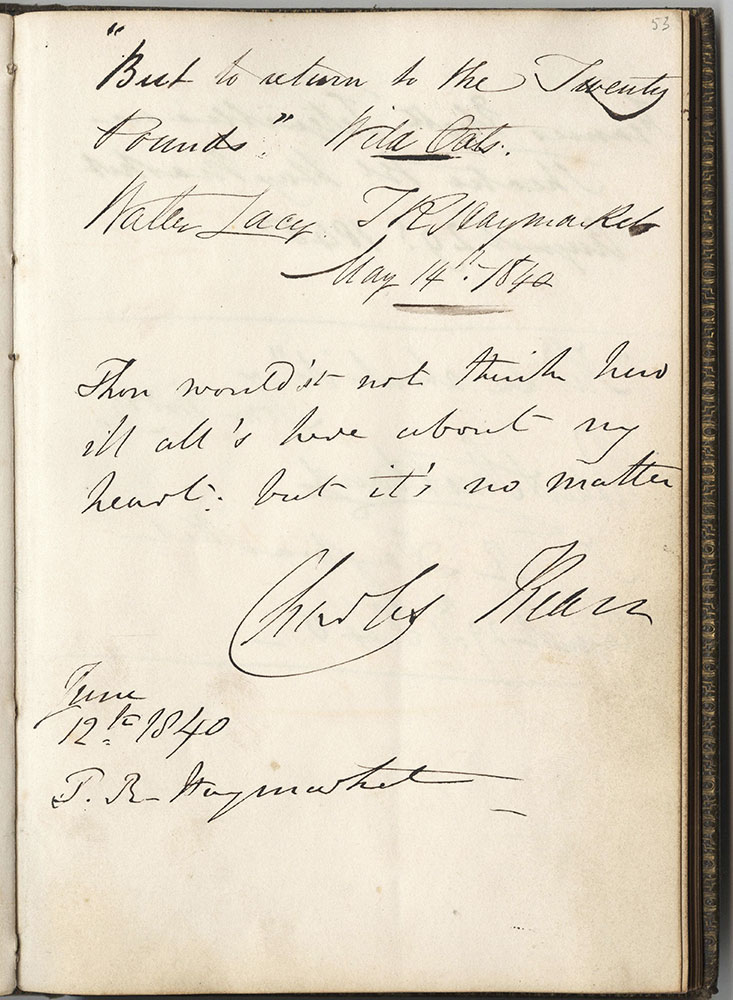 53
"But to return to the Twenty
Pounds." Wild Oats.
Walter Lacy T R Haymarket
May 14th. 1840
Thou would'st not think how
ill all's here about my
heart: but it's no matter
Charles Kean
June
12th 1840
T. R Haymarket